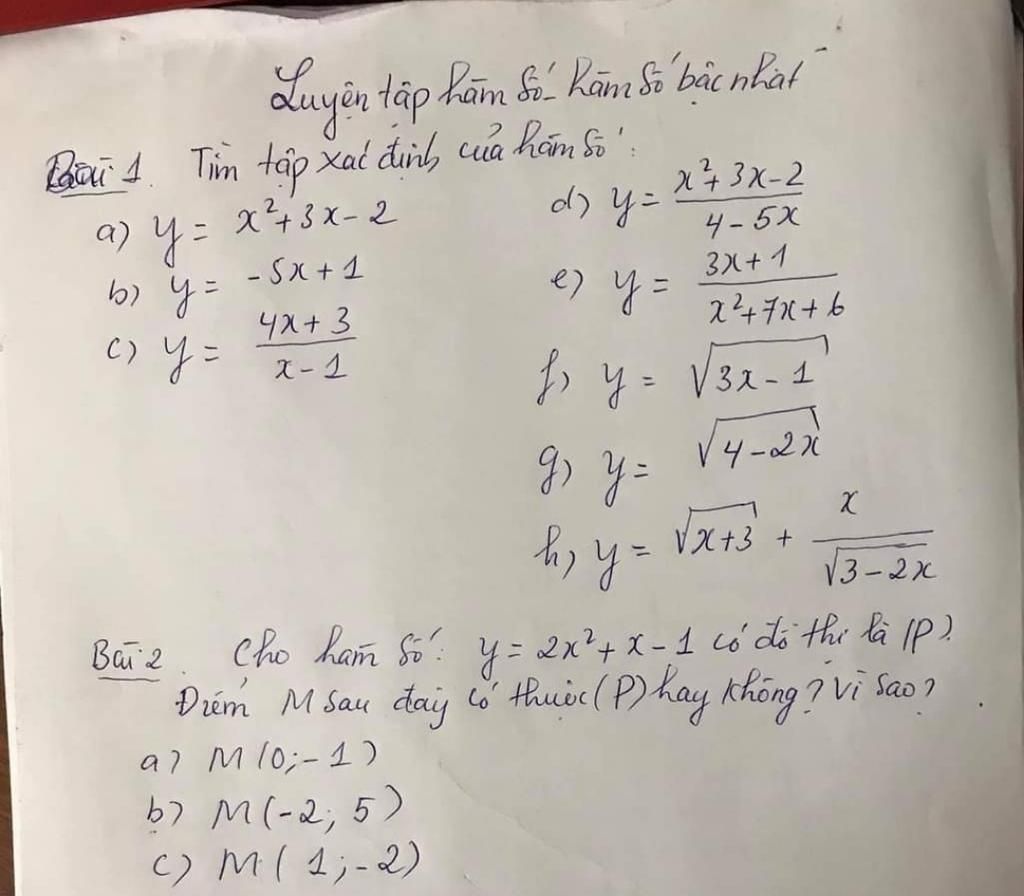 Luyện tập hàm số - hàm số bậc nhất
Bài 1. Tìm tập xác định của hàm số:
a) y = x² + 3x - 2
b) y = -5x + 1
c) y = (4x + 3)/(x - 1)
d) y = (x² + 3x - 2)/(4 - 5x)
e) y = (3x + 1)/(x² + 7x + 6)
f) y = √(3x - 1)
g) y = √(4 - 2x)
h) y = √(x + 3) + x/√(3 - 2x)
Bài 2. Cho hàm số: y = 2x² + x - 1 có đồ thị là (P).
Điểm M sau đây có thuộc (P) hay không? Vì sao?
a) M(0; -1)
b) M(-2; 5)
c) M(1; -2)